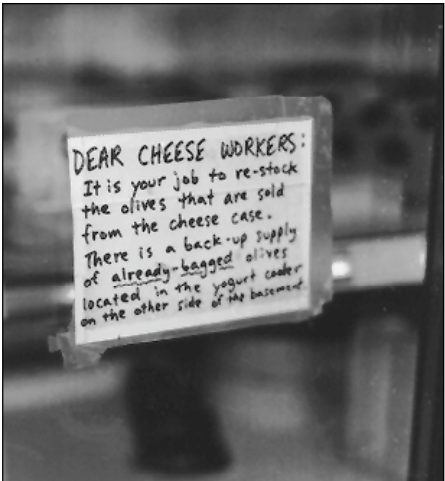 DEAR CHEESE WORKERS:
It is your job to re-stock
the olives that are sold
from the cheese case.
There is a back-up supply
of already-bagged olives
located in the yogurt cooler
on the other side of the basement.